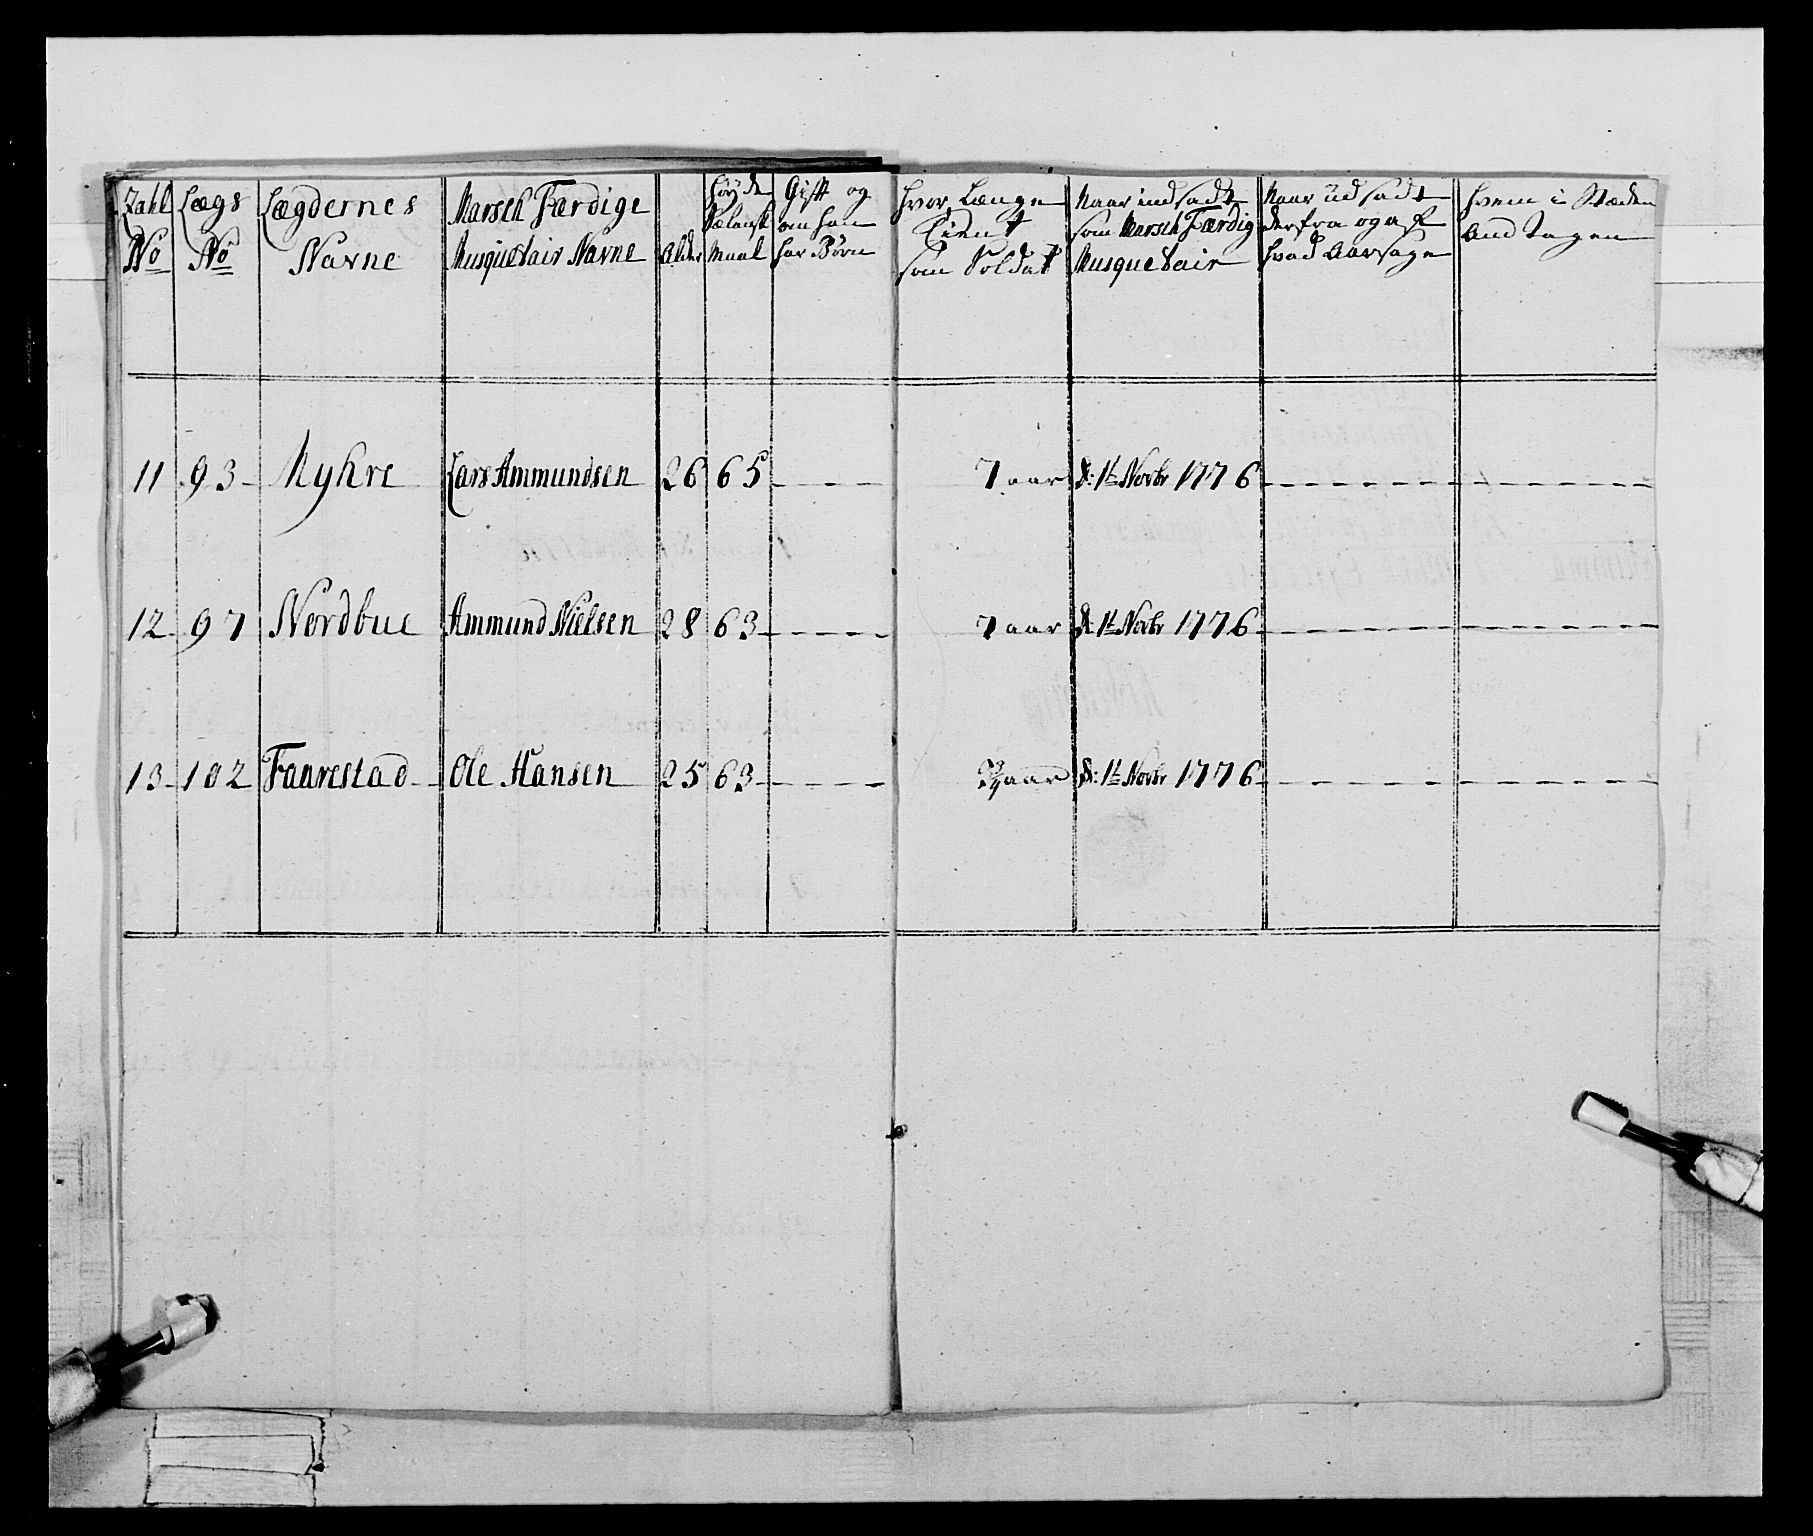 Zahl No
Lægs No
Lægdernes Navne
Marsch Færdige Musquetair Navne
Alder
Høyde Sælansk Maal
Gift og om han har Børn
hvor Længe tient som Soldat
Naar indsadt som Marsch Færdig Musquetair
Naar udsadt derfra og af hvad Aarsage
hvem i Stæden Andtagen
11 93 Myhre Lars Ammundsen 26 65 7 aar d: 1t Novbr 1776
12 97 Nordbue Ammund Nielsen 28 63 7 aar d: 1t Novbr 1776
13 102 Faarestad Ole Hansen 25 63 aar d: 1t Novbr 1776